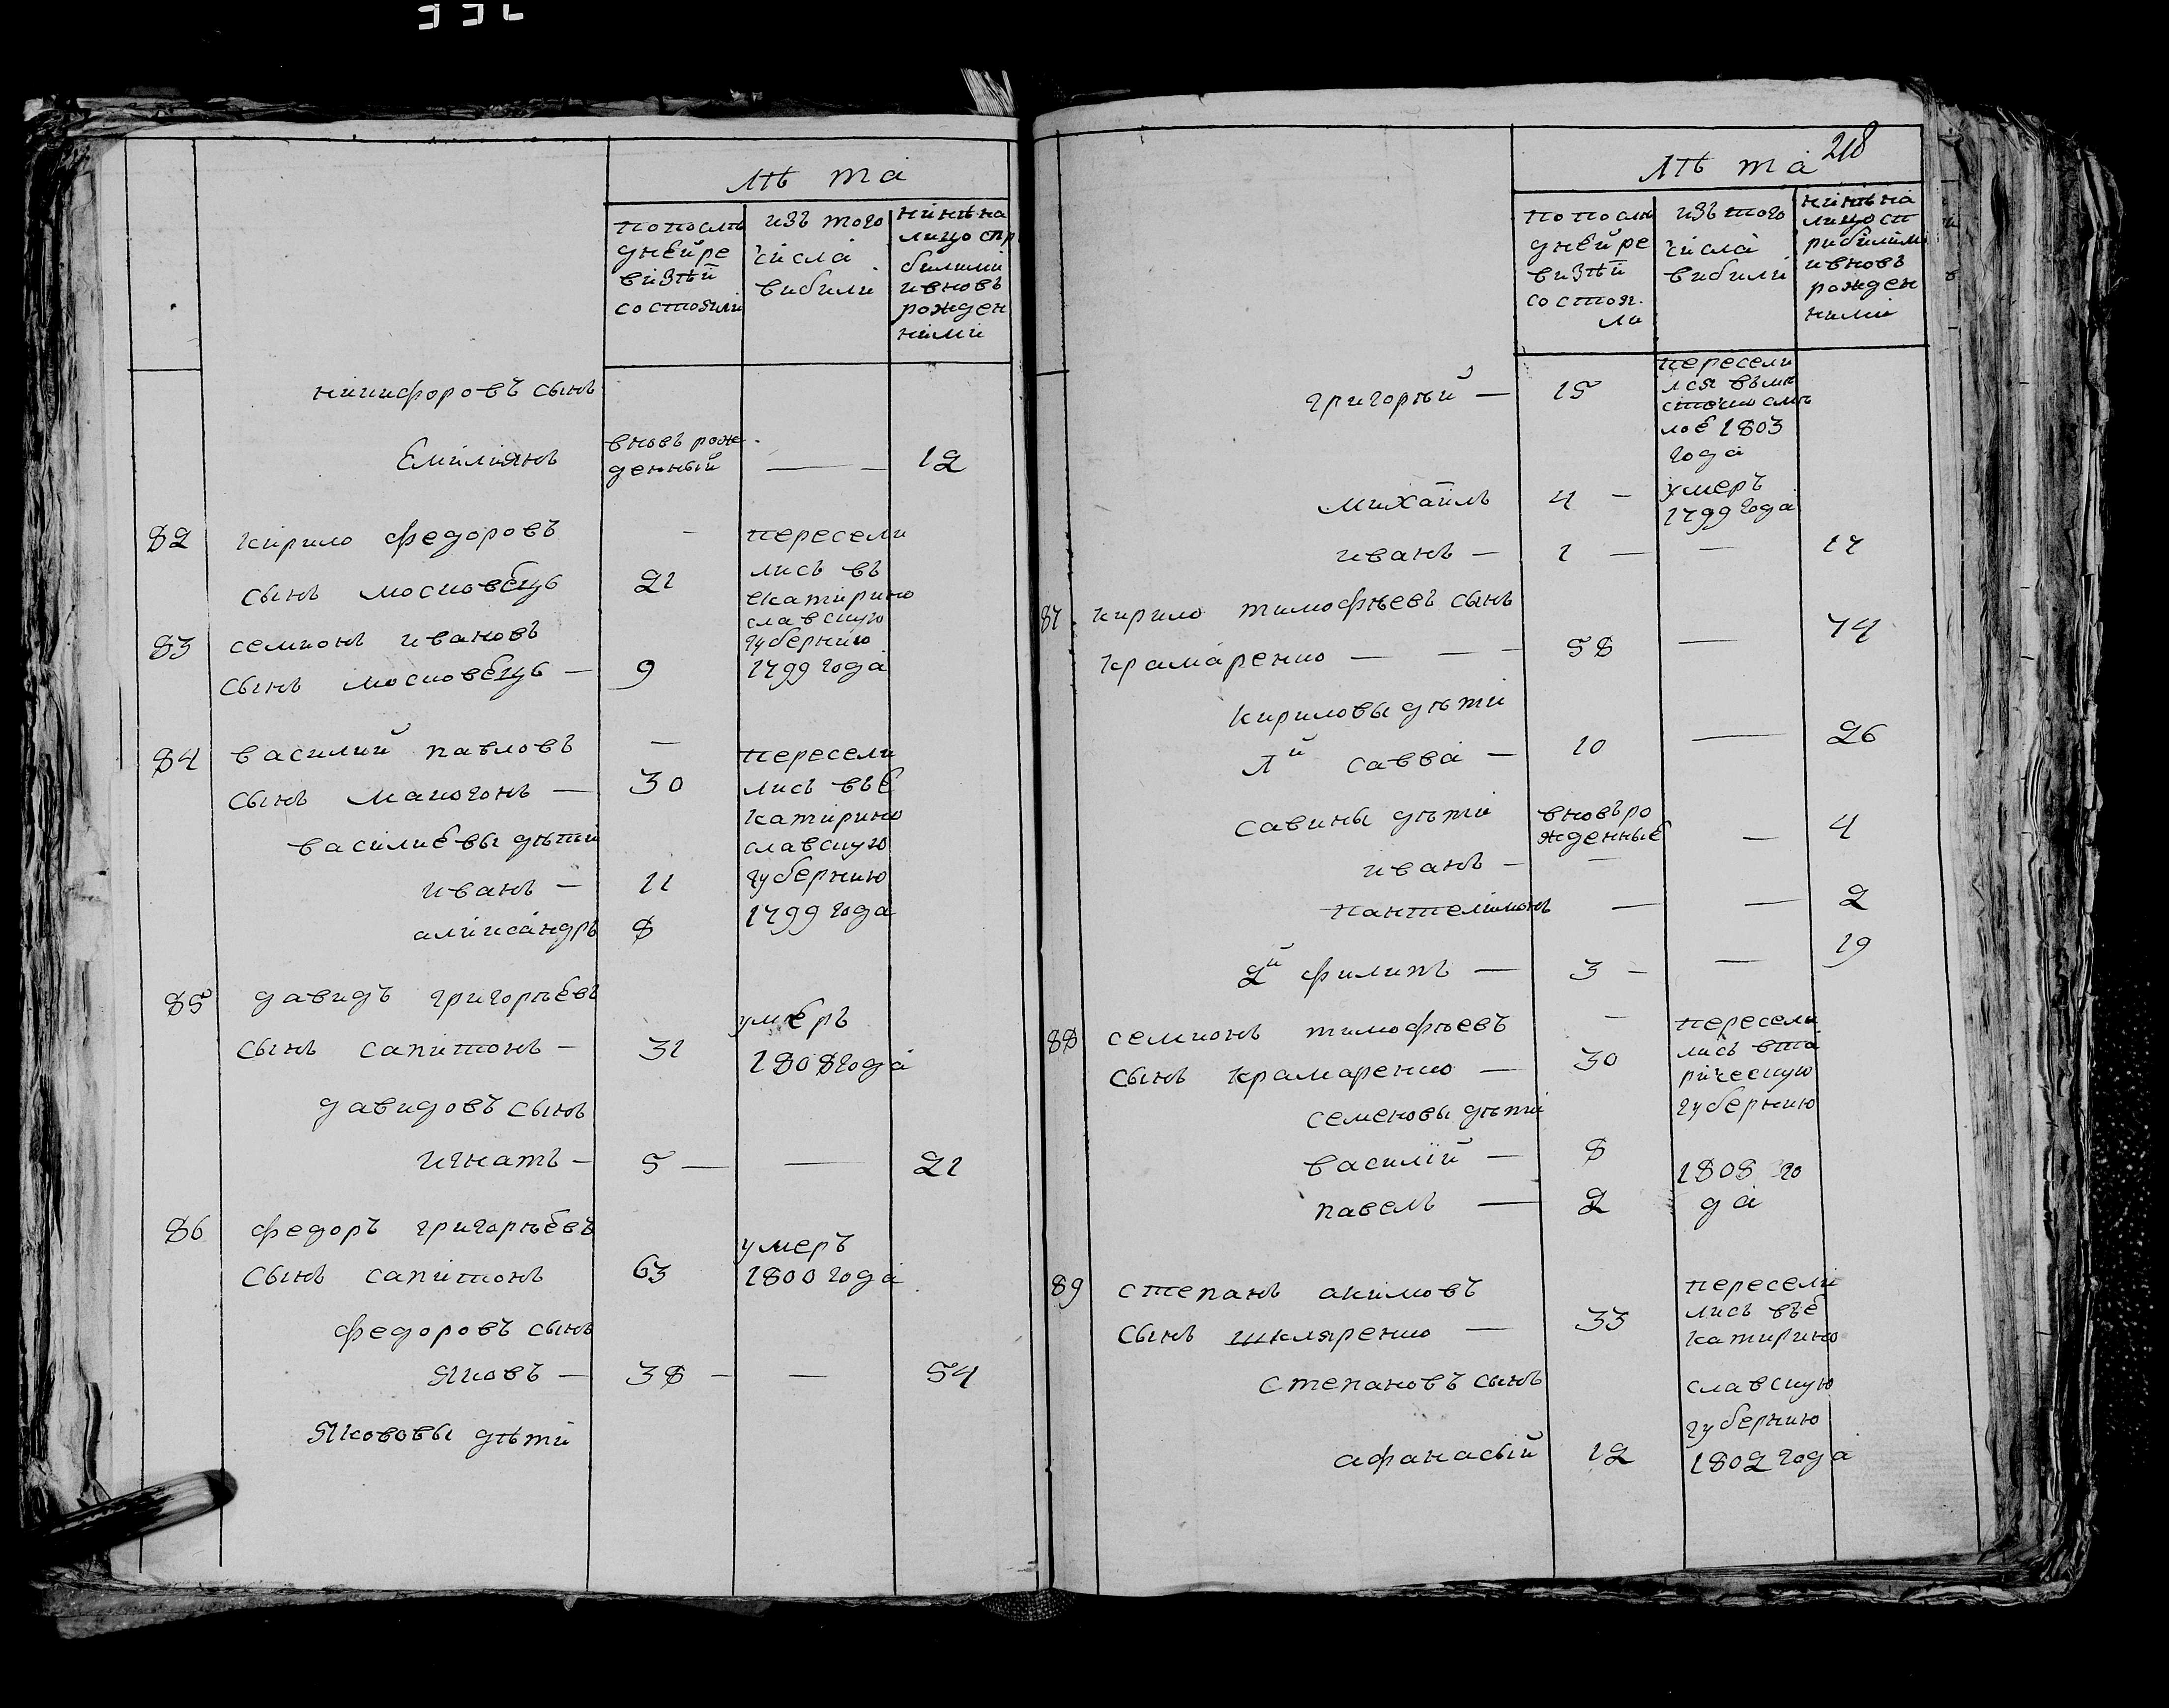 лѣта
попослѣ
дней ре
визѣй
состояли
изъ того
числа
выбыли
нынѣ на
лицо спр
былыми
и вновь
рожден
ными
никифоровъ сынъ
Емилиянъ
вновь рож
денный — 12
82 кирило федоровъ —
сынъ московецъ 21
пересели
лись въ
екатирино
славскую
губернию
1799 года
83 семионъ ивановъ
сынъ московецъ — 9
84 василий павловъ —
сынъ макогонъ — 30
василиевы дѣти
иванъ — 11
аликсандръ 8
пересели
лись въ е
катирино
славскую
губернию
1799 года
85 давидъ григорьевъ
сынъ сапитонъ — 31
умеръ
1808 года
давидовъ сынъ
игнатъ — 5 — — 21
86 федоръ григорьевъ
сынъ сапитонъ 63
умеръ
1800 года
федоровъ сынъ
яковъ — 38 — — 54
Якововы дѣти
218
лѣта
попослѣ
дней ре
визѣй
состоя
ли
изъ того
числа
выбыли
нынѣ на
лицо сп
рибылими
и вновь
рожден
ными
григорий — 15
пересели
лся въ мѣ
стечко смѣ
лое 1803
года
михайлъ 4 —
умеръ
1799 года
иванъ — 1 — — 17
87 кирило тимофѣевъ сынъ
крамаренко — — — 58 — 74
кириловы дѣти
1й савва — 10 — 26
савины дѣти
вновь ро
жденные
иванъ — — — 4
пантелимонъ — — 2
2й филипъ — 3 — — 19
88 семионъ тимофѣевъ —
сынъ крамаренко — 30
пересели
лись в та
рическую
губернию
1808 го
да
семеновы дѣти
василий — 8
павелъ — 2
89 степанъ акимовъ
сынъ шкляренко — 33
пересели
лись въ е
катирино
славскую
губернию
1802 года
степановъ сынъ
афанасый 12